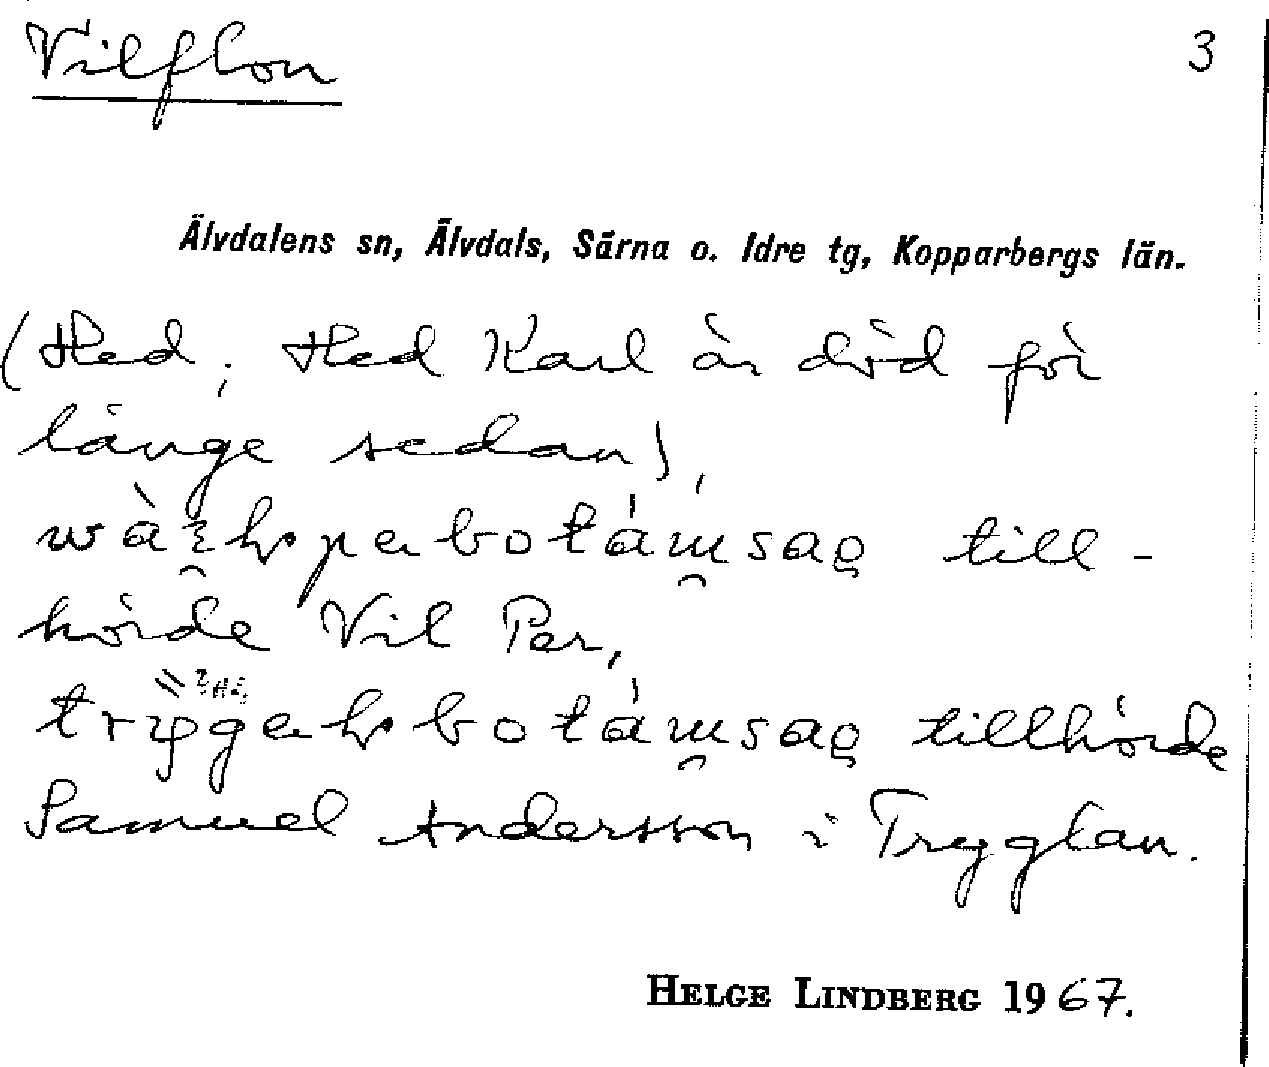 Vilflon
3
Älvdalens sn, Älvdals, Särna o. Idre tg, Kopparbergs län.
(Hed; Hed Karl är död för
länge sedan),
till-
hörde Vil Per,
tillhörde
Samuel Andersson i Trygglan.
HELGE LINDBERG 1967.